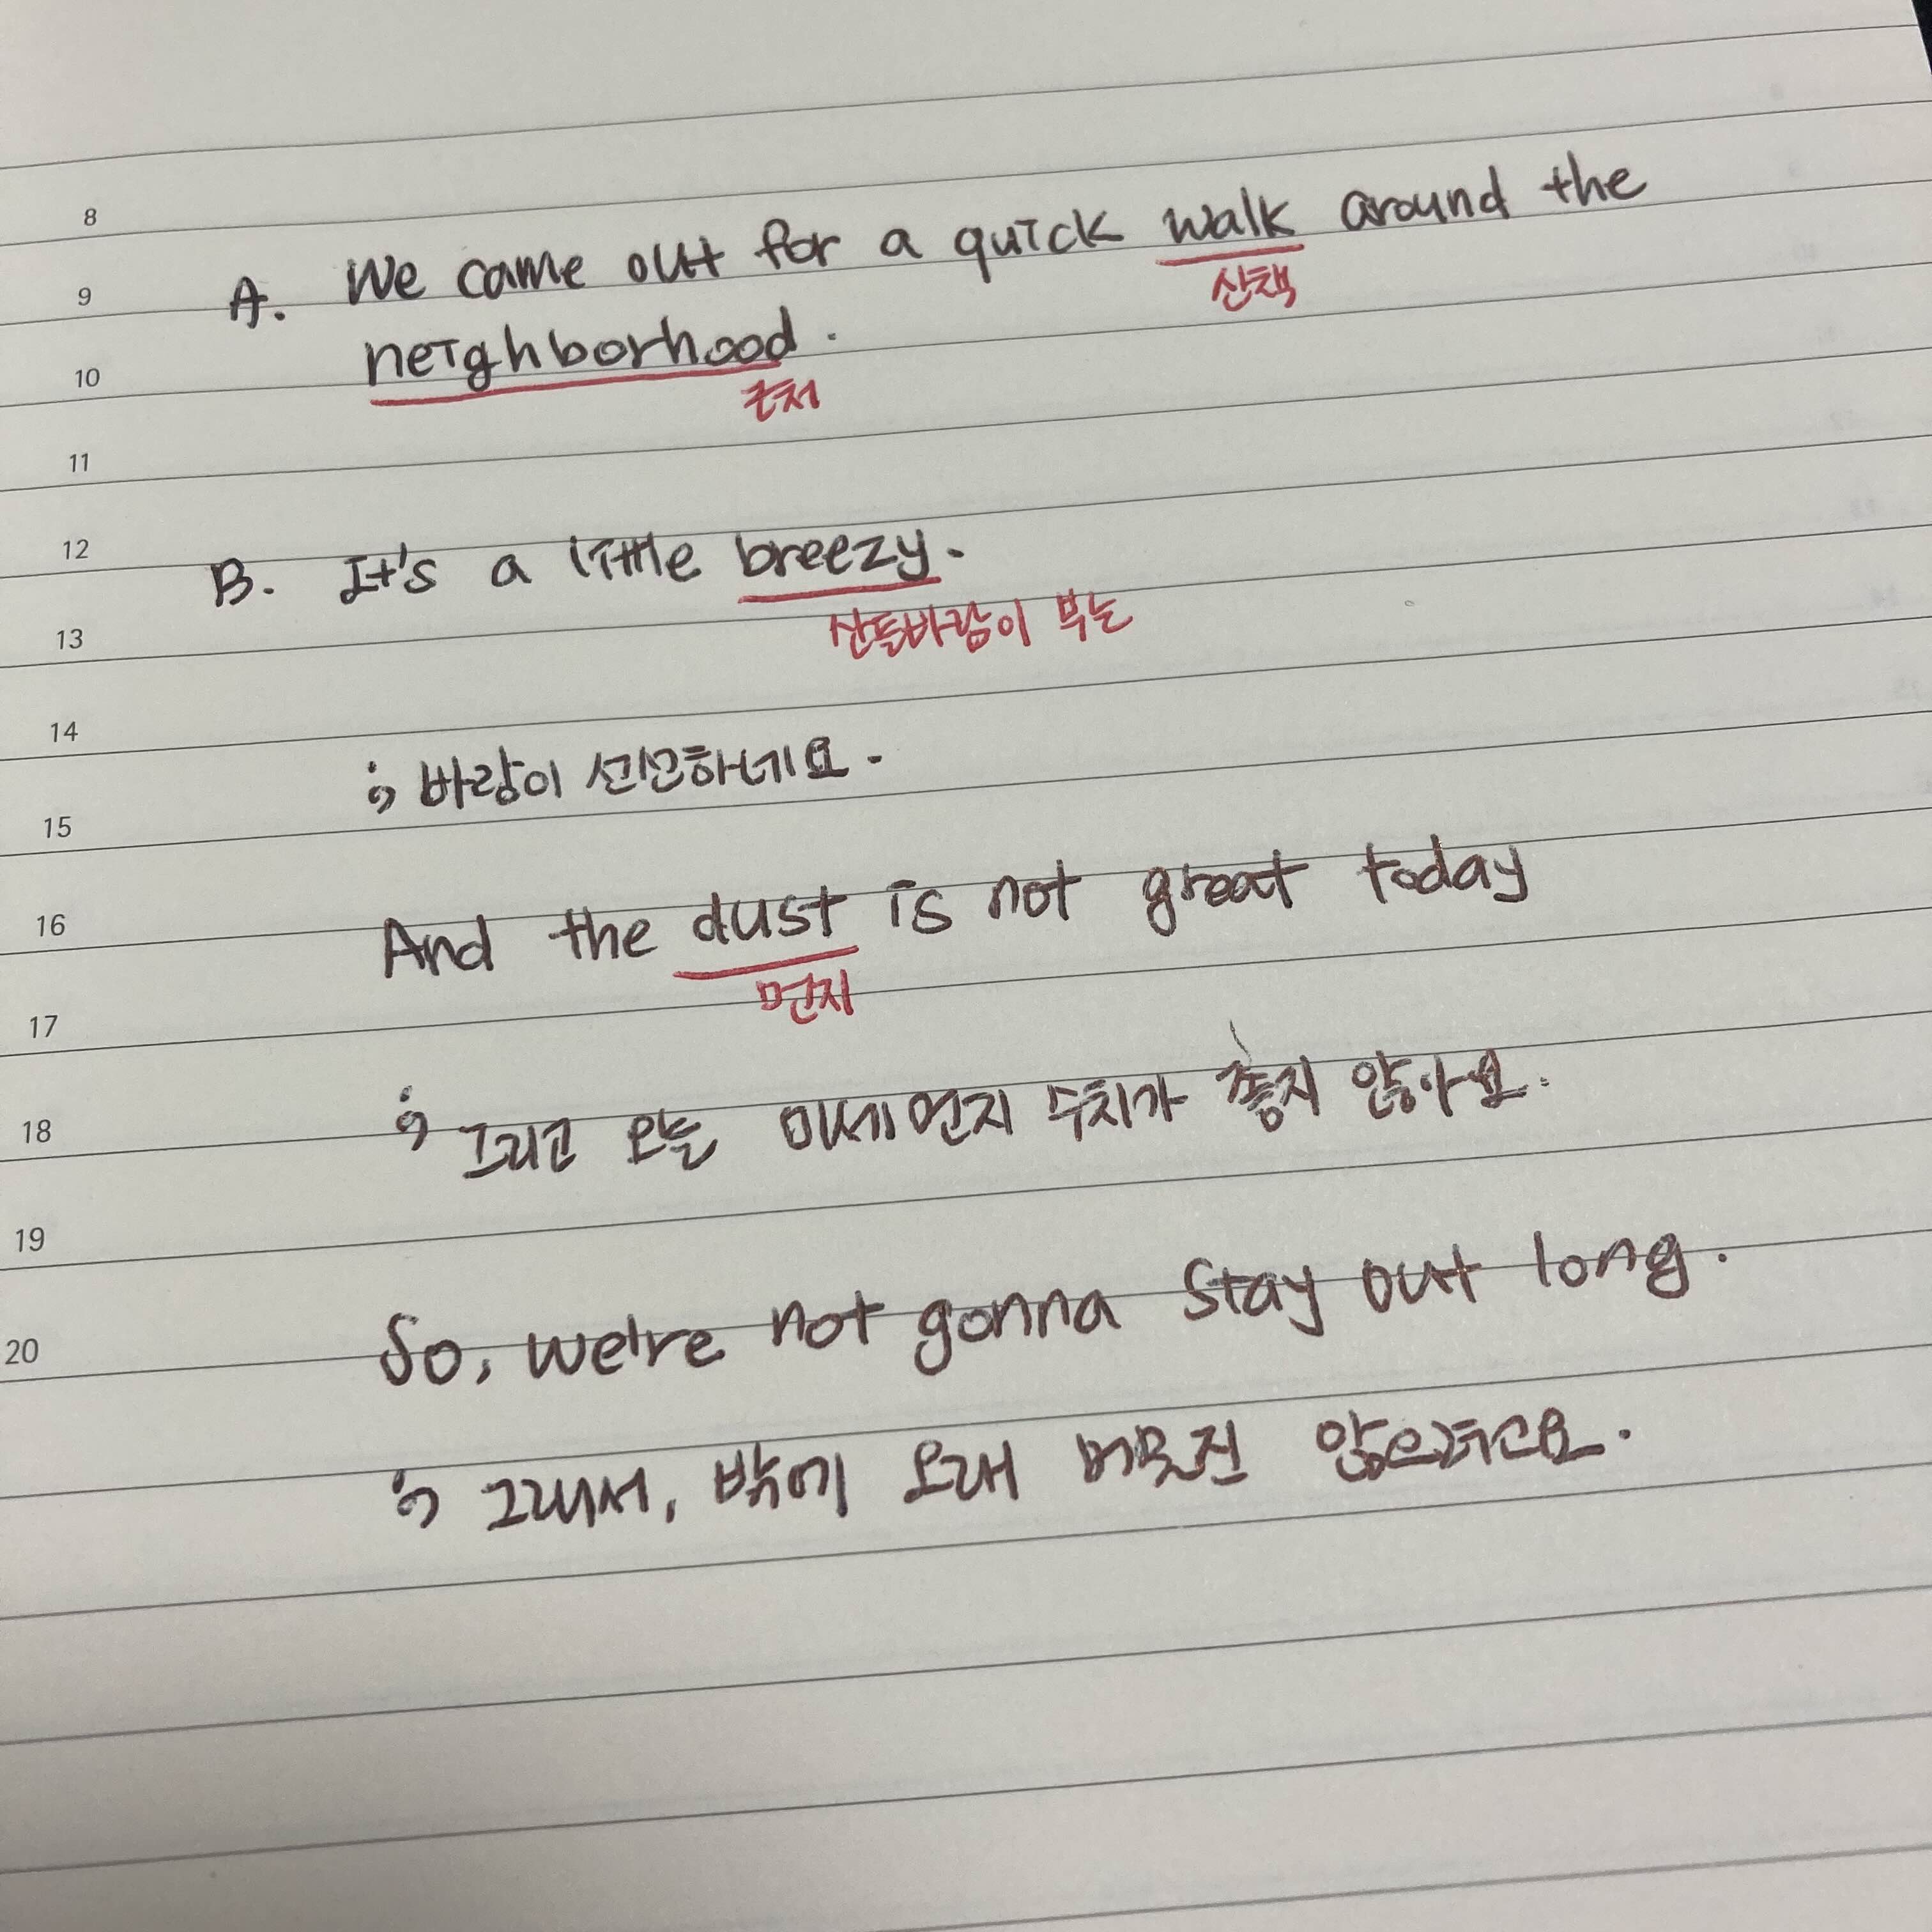 8
A. We came out for a quick walk around the
산책
9
neighborhood.
10
근처
11
12
B. It's a little breezy.
13
산들바람이 부는
14
; 바람이 선선하네요.
15
16
And the dust is not great today
먼지
17
18
; 그리고 오늘 미세먼지 수치가 좋지 않아요.
19
So, we're not gonna stay out long.
20
; 그래서, 밖에 오래 머무진 않으려구요.